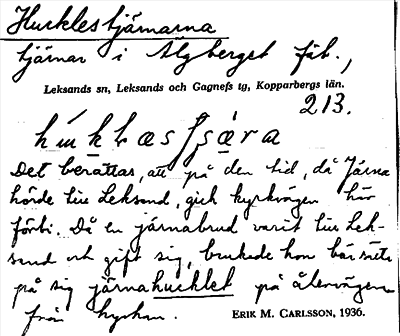 Hucklestjärnarna
tjärnar i Älgberget fäb.,
Leksands sn, Leksands och Gagnefs tg, Kopparbergs län.
213.
Det berättas, att på den tid, då Järna
hörde till Leksand, gick kyrkvägen här
förbi. Då en järnabrud varit till Lek-
sand och gift sig, brukade hon här sätta
på sig järnahucklet på återvägen
från kyrkan.
ERIK M. CARLSSON, 1936.